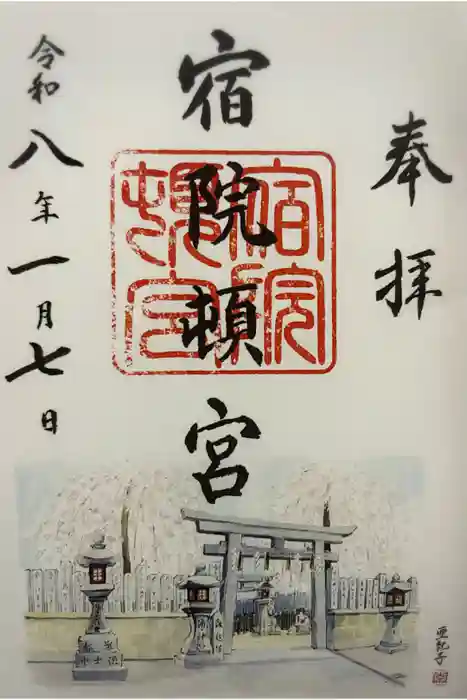 奉拝
宿院頓宮
宿院頓宮
令和八年一月七日
亜記子